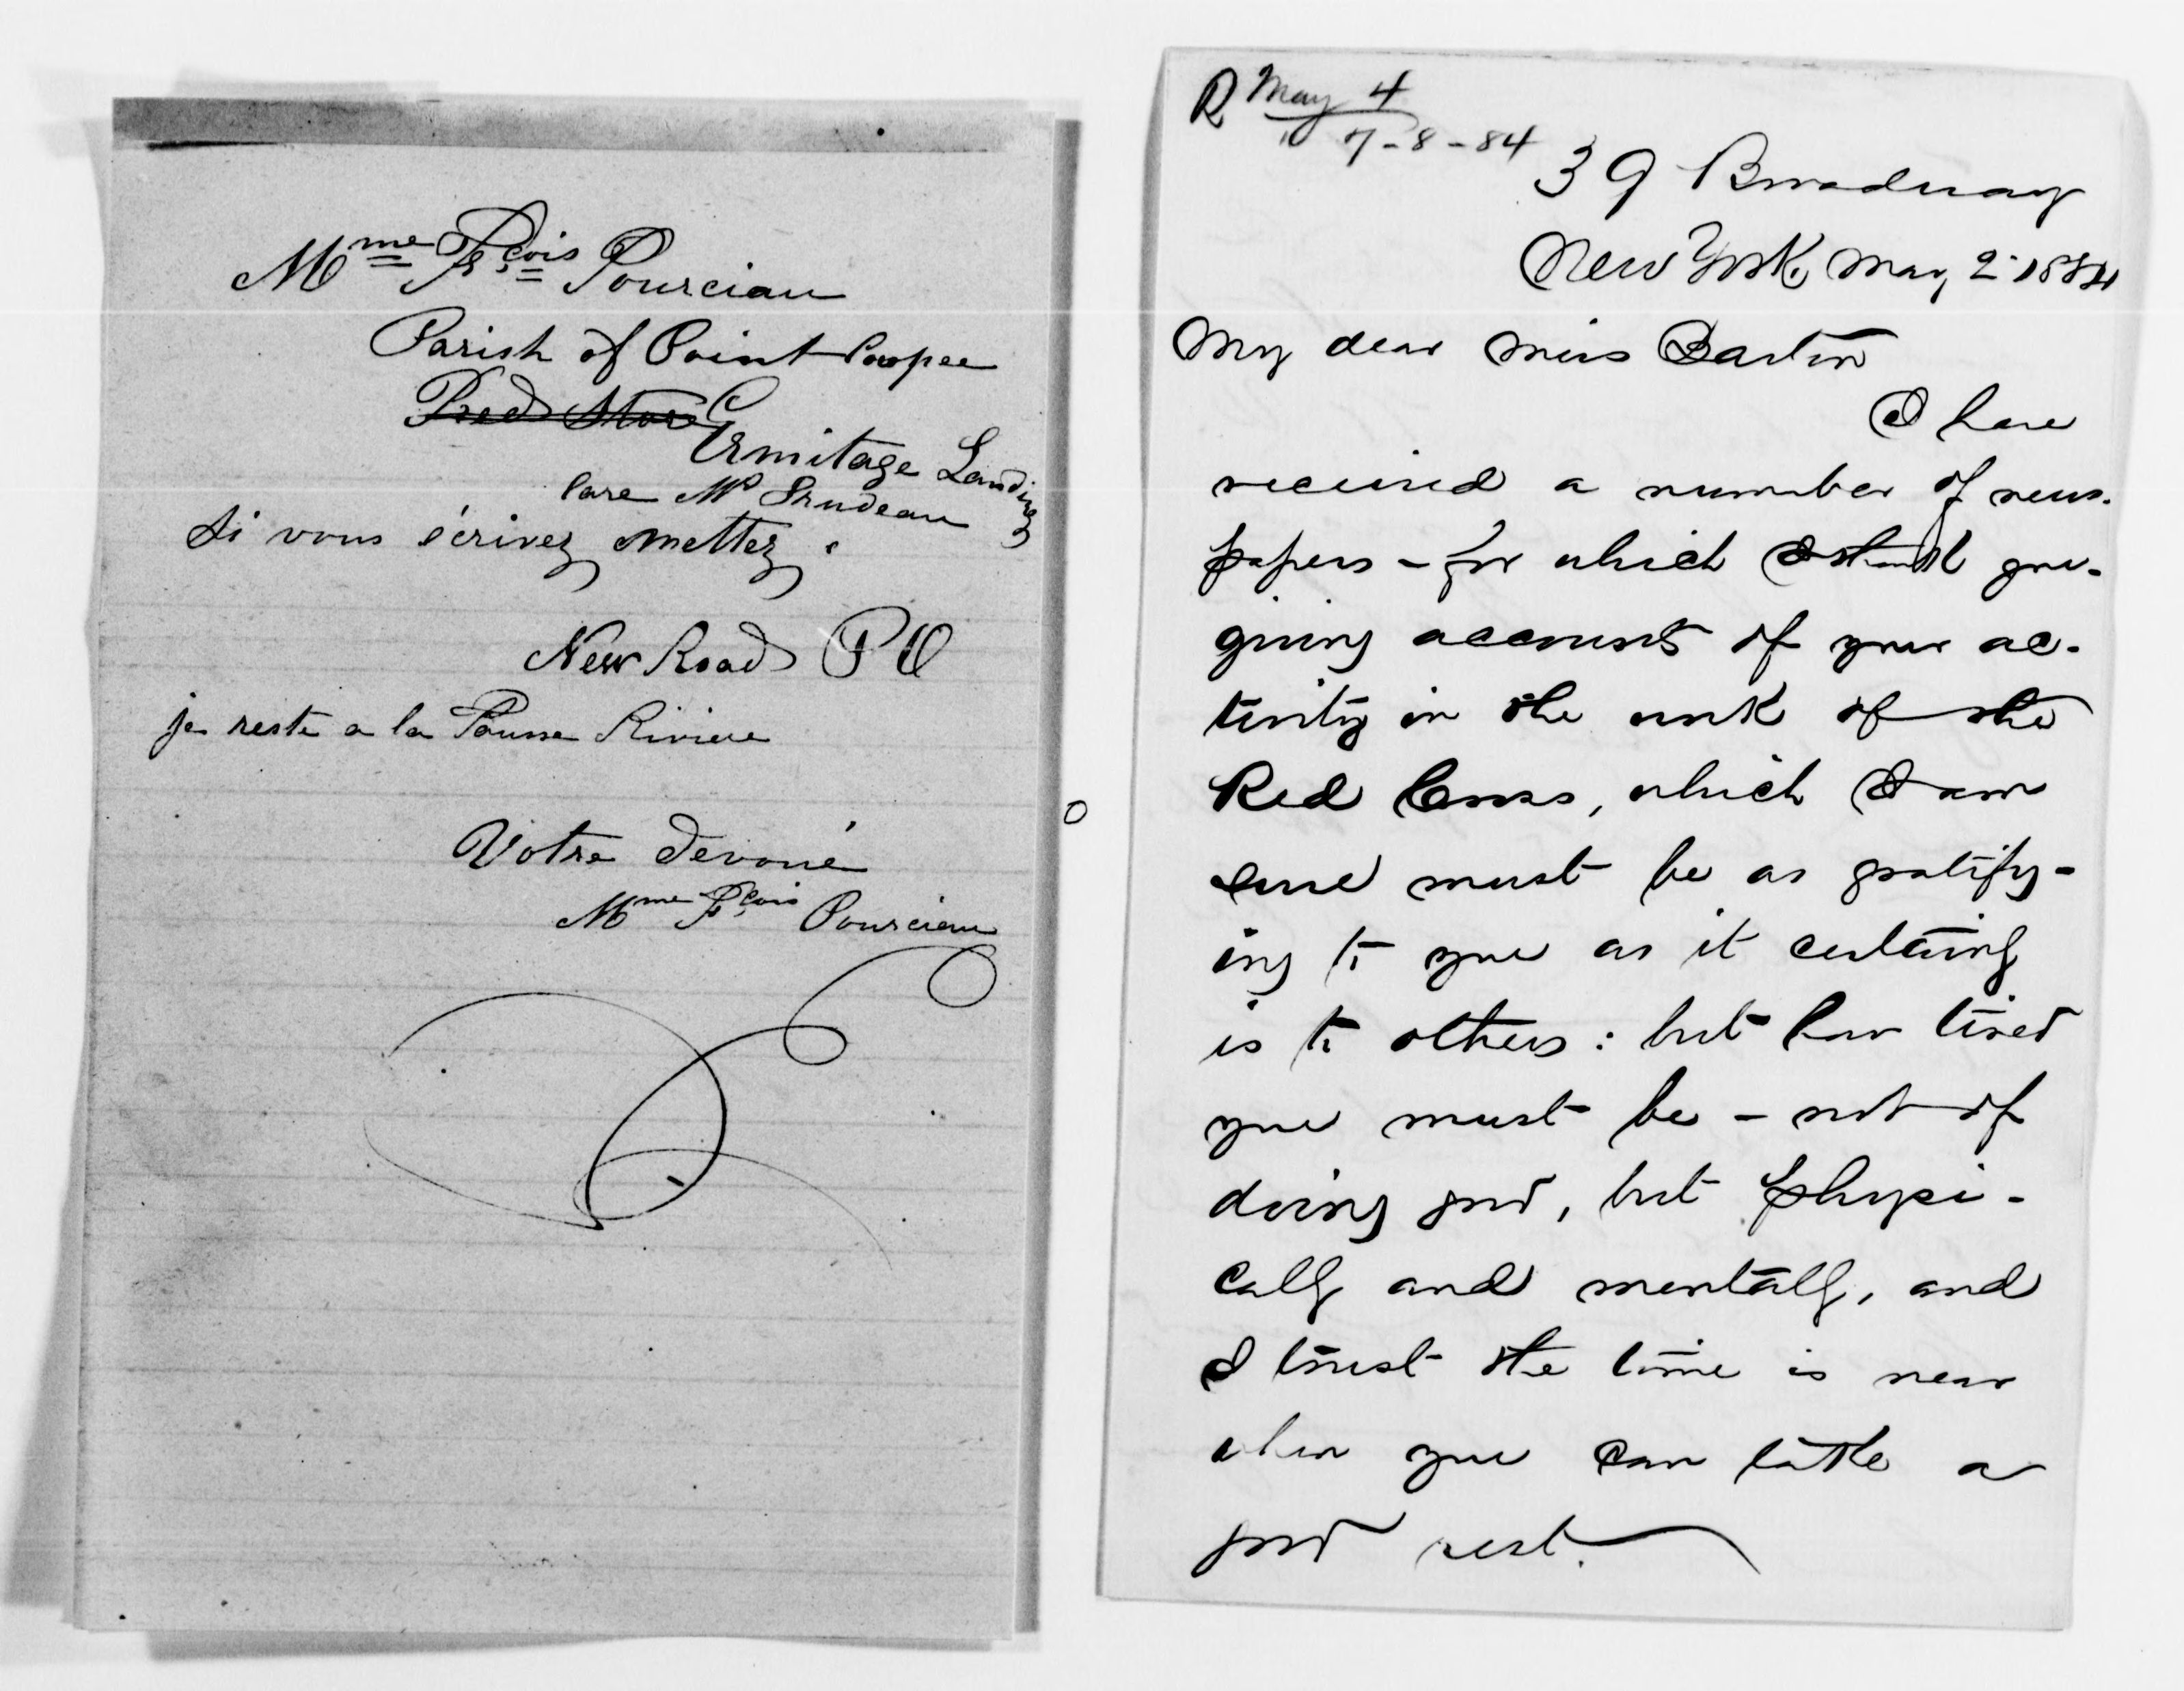 Mme Fçois Pourciau
Parish of Point Coupee
Red Store
Ermitage Landing
Care Mr Trudeau
Si vous écrivez mettez
New Road P O
je reste a la Fausse Riviere
Votre devoué
Mme Fçois Pourciau
R May 4
7-8-84
39 Broadway
New York, May 2 1884
My dear Miss Barton
I have
received a number of news-
papers - for which I thank you -
giving accounts of your ac-
tivity in the work of the
Red Cross, which I am
sure must be as gratify-
ing to you as it certainly
is to others: but how tired
you must be - not of
doing good, but physi-
cally and mentally, and
I trust the time is near
when you can take a
good rest.